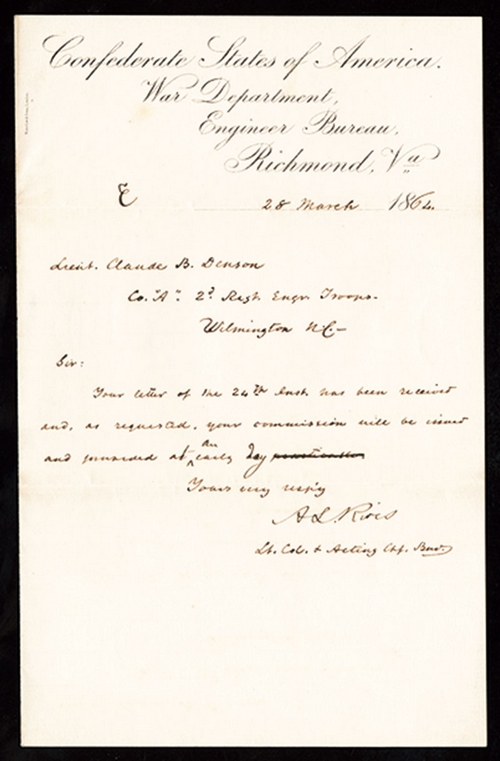 Confederate States of America.
War Department,
Engineer Bureau,
Richmond, Va
E
28 March 1864.
Lieut. Claude B. Denson
Co. "A". 2d Regt. Engr. Troops.
Wilmington N.C.
Sir:
Your letter of the 24th Inst. has been received
and, as requested, your commission will be issued
and forwarded at an early day
Yours very respy
A L. Rives
Lt. Col. & Acting Chf. Bur.